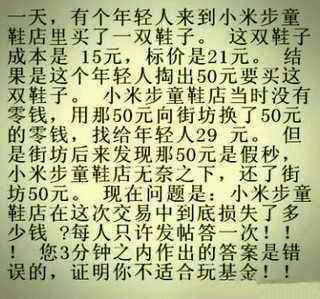 一天，有个年轻人来到小米步童
鞋店里买了一双鞋子。 这双鞋子
成本是 15元，标价是21元。 结
果是这个年轻人掏出50元要买这
双鞋子。 小米步童鞋店当时没有
零钱，用那50元向街坊换了50元
的零钱，找给年轻人29 元。 但
是街坊后来发现那50元是假秒，
小米步童鞋店无奈之下，还了街
坊50元。 现在问题是：小米步童
鞋店在这次交易中到底损失了多
少钱 ?每人只许发帖答一次！！
！ 您3分钟之内作出的答案是错
误的，证明你不适合玩基金！！